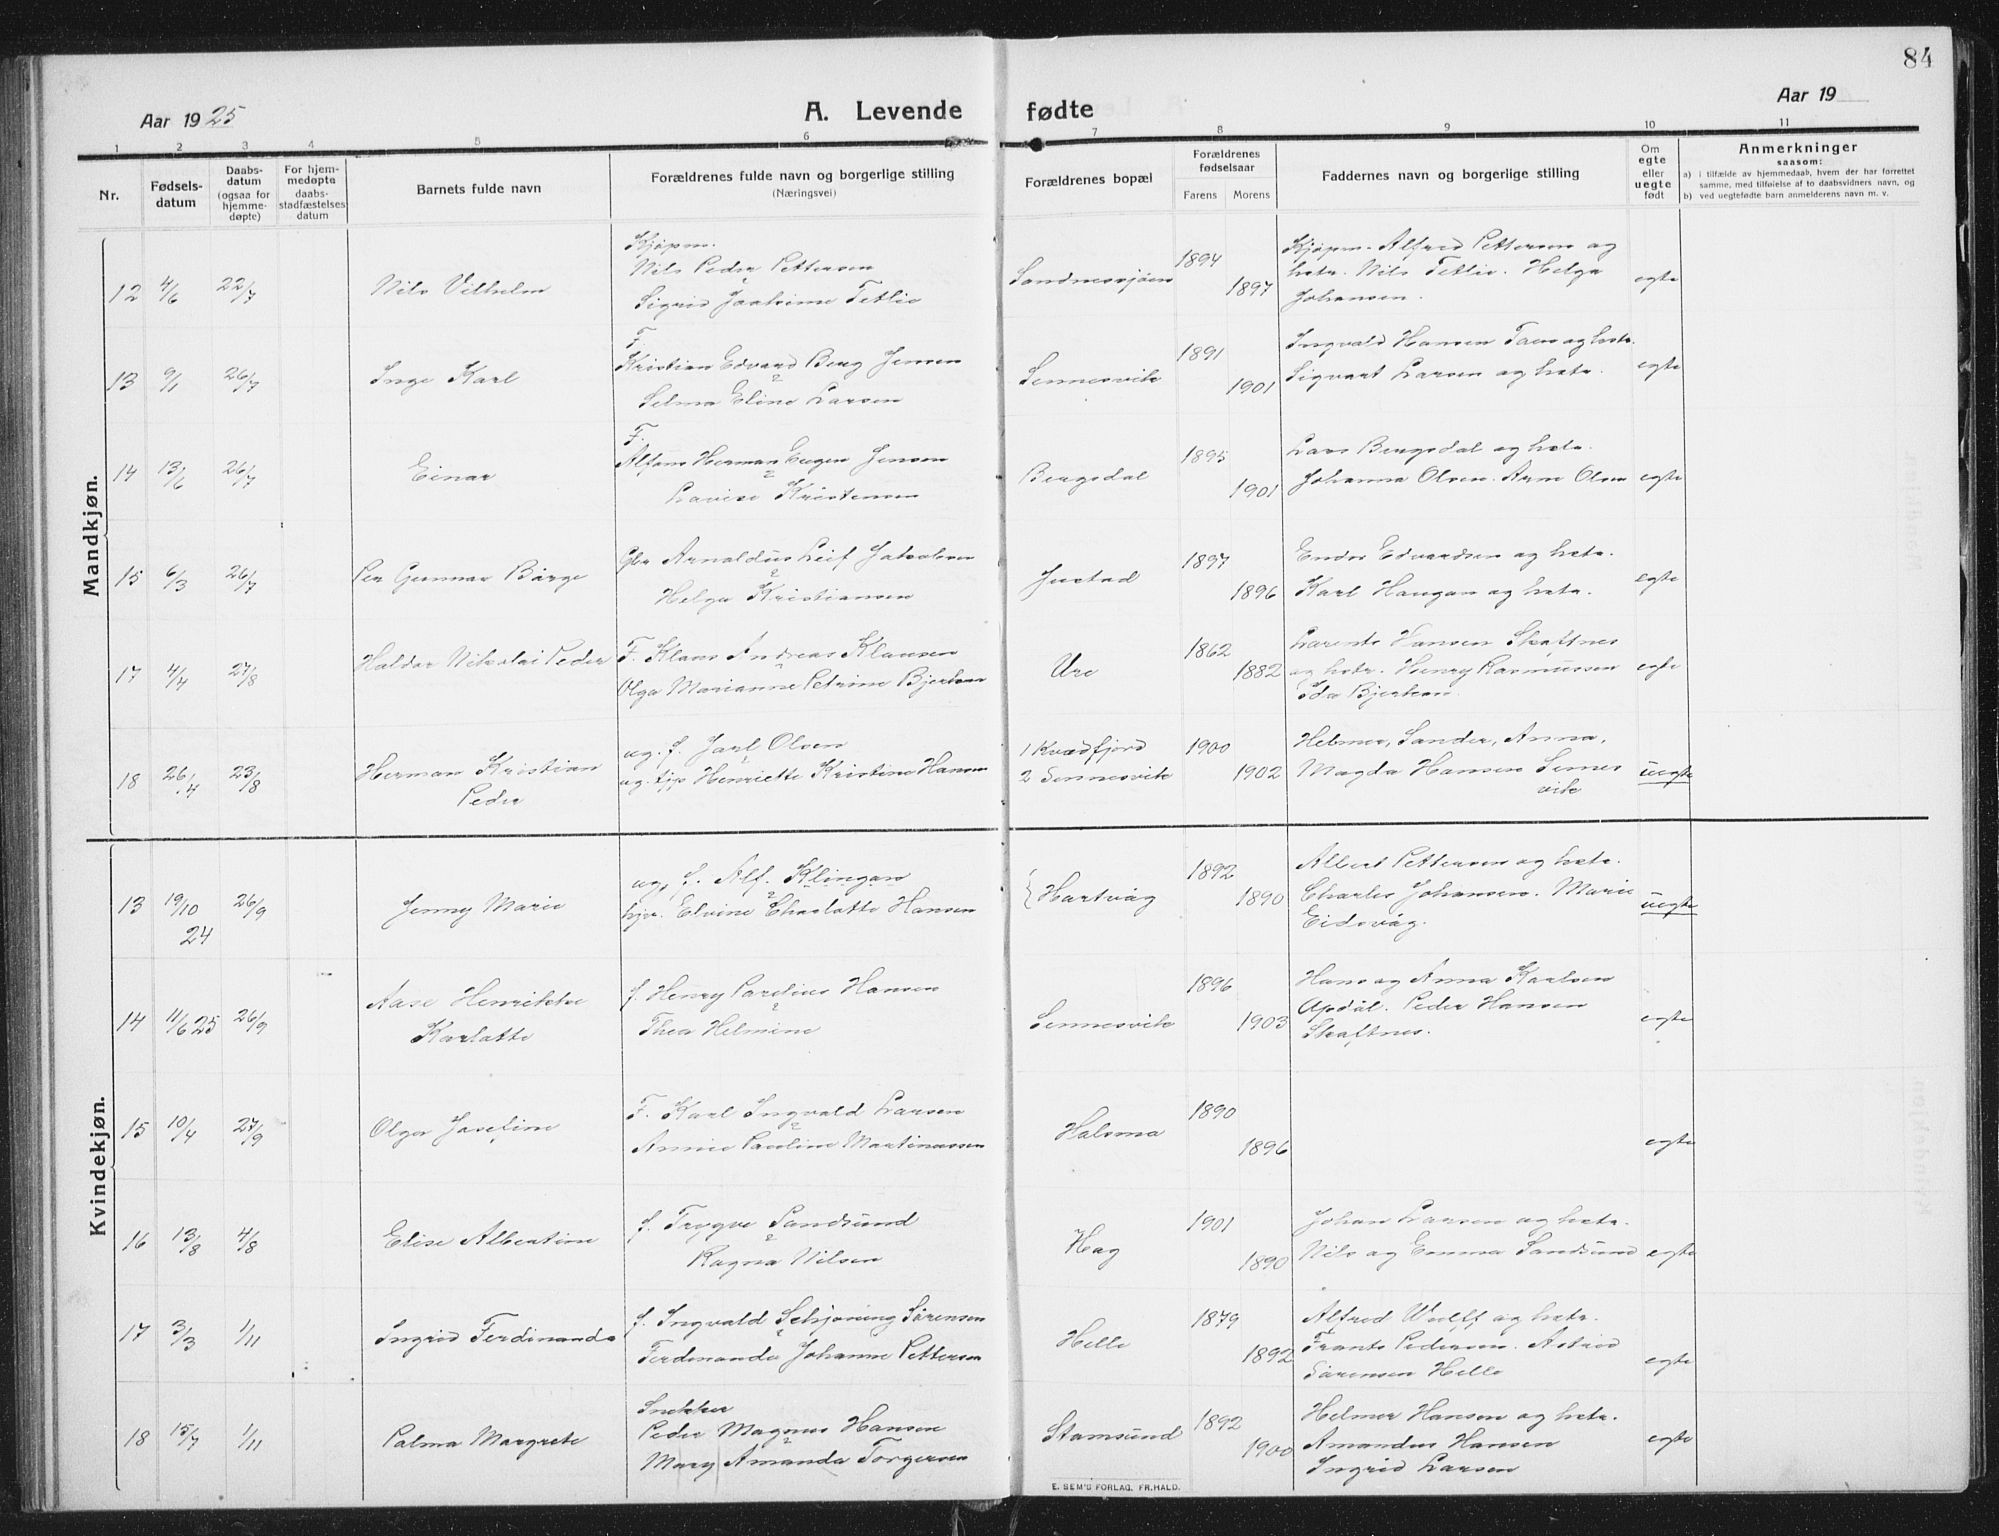 84
Aar 1925
A. Levende fødte
Aar 19
1 2 3 4 5 6 7 8 9 10 11
Nr.
Fødsels-
datum
Daabs-
datum
(ogsaa for
hjemme-
døpte)
For hjem-
medøpte
daabs-
stadfæstelses
datum
Barnets fulde navn
Forældrenes fulde navn og borgerlige stilling
(Næringsvei)
Forældrenes bopæl
Forældrenes
fødselsaar
Farens Morens
Faddernes navn og borgerlige stilling
Om
egte
eller
uegte
født
Anmerkninger
saasom:
a) i tilfælde av hjemmedaab, hvem der har forrettet
samme, med tilføielse af to daabsvidners navn, og
b) ved uegtefødte barn anmelderens navn m. v.
Mandkjøn.
12 4/6 22/7 Nils Vilhelm
Kjøpm.
Nils Peder Pettersen
Sigrid Joakime Tetlie
Sandnessjøen 1894 1897
Kjøpm. Alfred Pettersen og
hstr. Nils Tetlie. Helga
Johansen.
egte
13 9/1 26/7 Inge Karl
F.
Kristian Edvard Berg Jensen
Selma Eline Larsen
Sennesvik 1891 1901
Ingvald Hansen og hstr.
Sigvart Larsen og hstr.
egte
14 13/6 26/7 Einar
F.
Alfons Herman Eugen Jensen
Lovise Kristensen
Bergsdal 1895 1901
Lars Bergsdal og hstr.
Johanna Olsen. Arne Olsen
egte
15 6/3 26/7 Per Gunnar Børge
Gbr Arnoldus Leif Jakobsen
Helga Kristiansen
Justad 1897 1896
Endor Edvardsen og hstr.
Karl Haugan og hstr.
egte
17 4/4 27/8 Haldor Nikolai Peder
F. Klaus Andreas Klausen
Olga Marianne Petrine Bjerkan
Ure 1862 1882
Lorents Hansen Skaftnes
og hstr. Henry Rasmussen
Ida Bjerkan.
egte
18 26/4 23/8 Herman Kristian
Peder
ug. f. Jarl Olsen
ug. tjp Henriette Kristine Hansen
1 Kvædfjord
2 Sennesvik
1900 1902
Helmer, Sander, Anna,
Magda Hansen Sennes
vik
uegte
Kvindekjøn.
13 19/10 24 26/9 Jenny Marie
ug, f. Alf. Klingan
hjv. Elvine Charlotte Hansen
Hartvåg 1892 1890
Albert Pettersen og hstr.
Charles Johansen. Marie
Eidsvåg.
uegte
14 11/6 25 26/9 Aase Henrikke
Karlotte
f. Henry Parelius Hansen
Thea Helmine
Sennesvik 1896 1903
Hans og Anna Karlsen
Opdøl. Peder Hansen
Skaftnes.
egte
15 10/4 27/9 Olga Josefine
F. Karl Ingvald Larsen
Annie Pauline Martinussen
Halsmo 1890 1896
egte
16 13/8 4/8 Elise Albertine
f. Trygve Sandsund
Ragna Nilsen
Hag 1901 1890
Johan Larsen og hstr.
Nils og Emma Sandsund
egte
17 3/3 1/11 Ingrid Ferdinanda
f. Ingvald Schjøning Sørensen
Ferdinanda Johanne Pettersen
Helle 1879 1892
Alfred Wulff og hstr.
Frants Pedersen. Astrid
Sørensen Helle
egte
18 15/7 1/11 Palma Margrete
Snekker
Peder Magnus Hansen
Mary Amanda Torgersen
Stamsund 1892 1900
Helmer Hansen og hstr.
Amandus Hansen
Ingrid Larsen
egte
E. SEM'S FORLAG, FR.HALD.